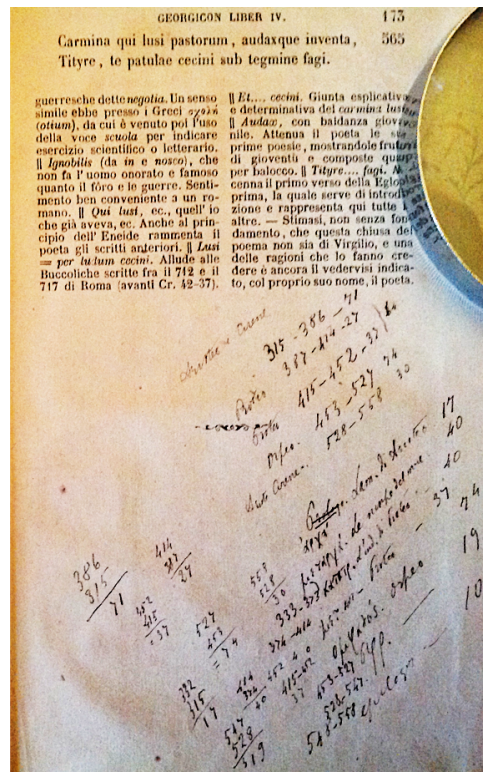 GEORGICON LIBER IV. 173
Carmina qui lusi pastorum, audaxque inventa, 565
Tityre, te patulae cecini sub tegmine fagi.
guerresche dette negotia. Un senso
simile ebbe presso i Greci σχολή
(otium), da cui è venuto poi l'uso
della voce scuola per indicare
esercizio scientifico o letterario.
|| Ignobilis (da in e nosco), che
non fa l'uomo onorato e famoso
quanto il fòro e le guerre. Senti-
mento ben conveniente a un ro-
mano. || Qui lusi, ec., quell'io
che già aveva, ec. Anche al prin-
cipio dell'Eneide rammenta il
poeta gli scritti anteriori. || Lusi
= per ludum cecini. Allude alle
Buccoliche scritte fra il 712 e il
717 di Roma (avanti Cr. 42-37).
|| Et.... cecini. Giunta esplicativa
e determinativa del carmina lusi.
|| Audax, con baldanza giova-
nile. Attenua il poeta le sue
prime poesie, mostrandole frutto
di gioventù e composte quasi
per balocco. || Tityre.... fagi. Ac-
cenna il primo verso della Egloga
prima, la quale serve di introdu-
zione e rappresenta qui tutte le
altre. — Stimasi, non senza fon-
damento, che questa chiusa del
poema non sia di Virgilio, e una
delle ragioni che lo fanno cre-
dere è ancora il vedervisi indica-
to, col proprio suo nome, il poeta.
Cirene 315-386-71
Proteo 387-414-27
Proteo 415-452-37
Orfeo. 453-527 74
Cirene 528-558 30
17
40
40
333-373
374-414 Proteo 37
415-452 Orfeo 74
453-527 19
528-547
548-558 epilogo 10
386
315
71
414
387
27
452
415
=37
527
453
=74
558
528
30
332
315
17
414
374
40
452
415
37
547
528
519